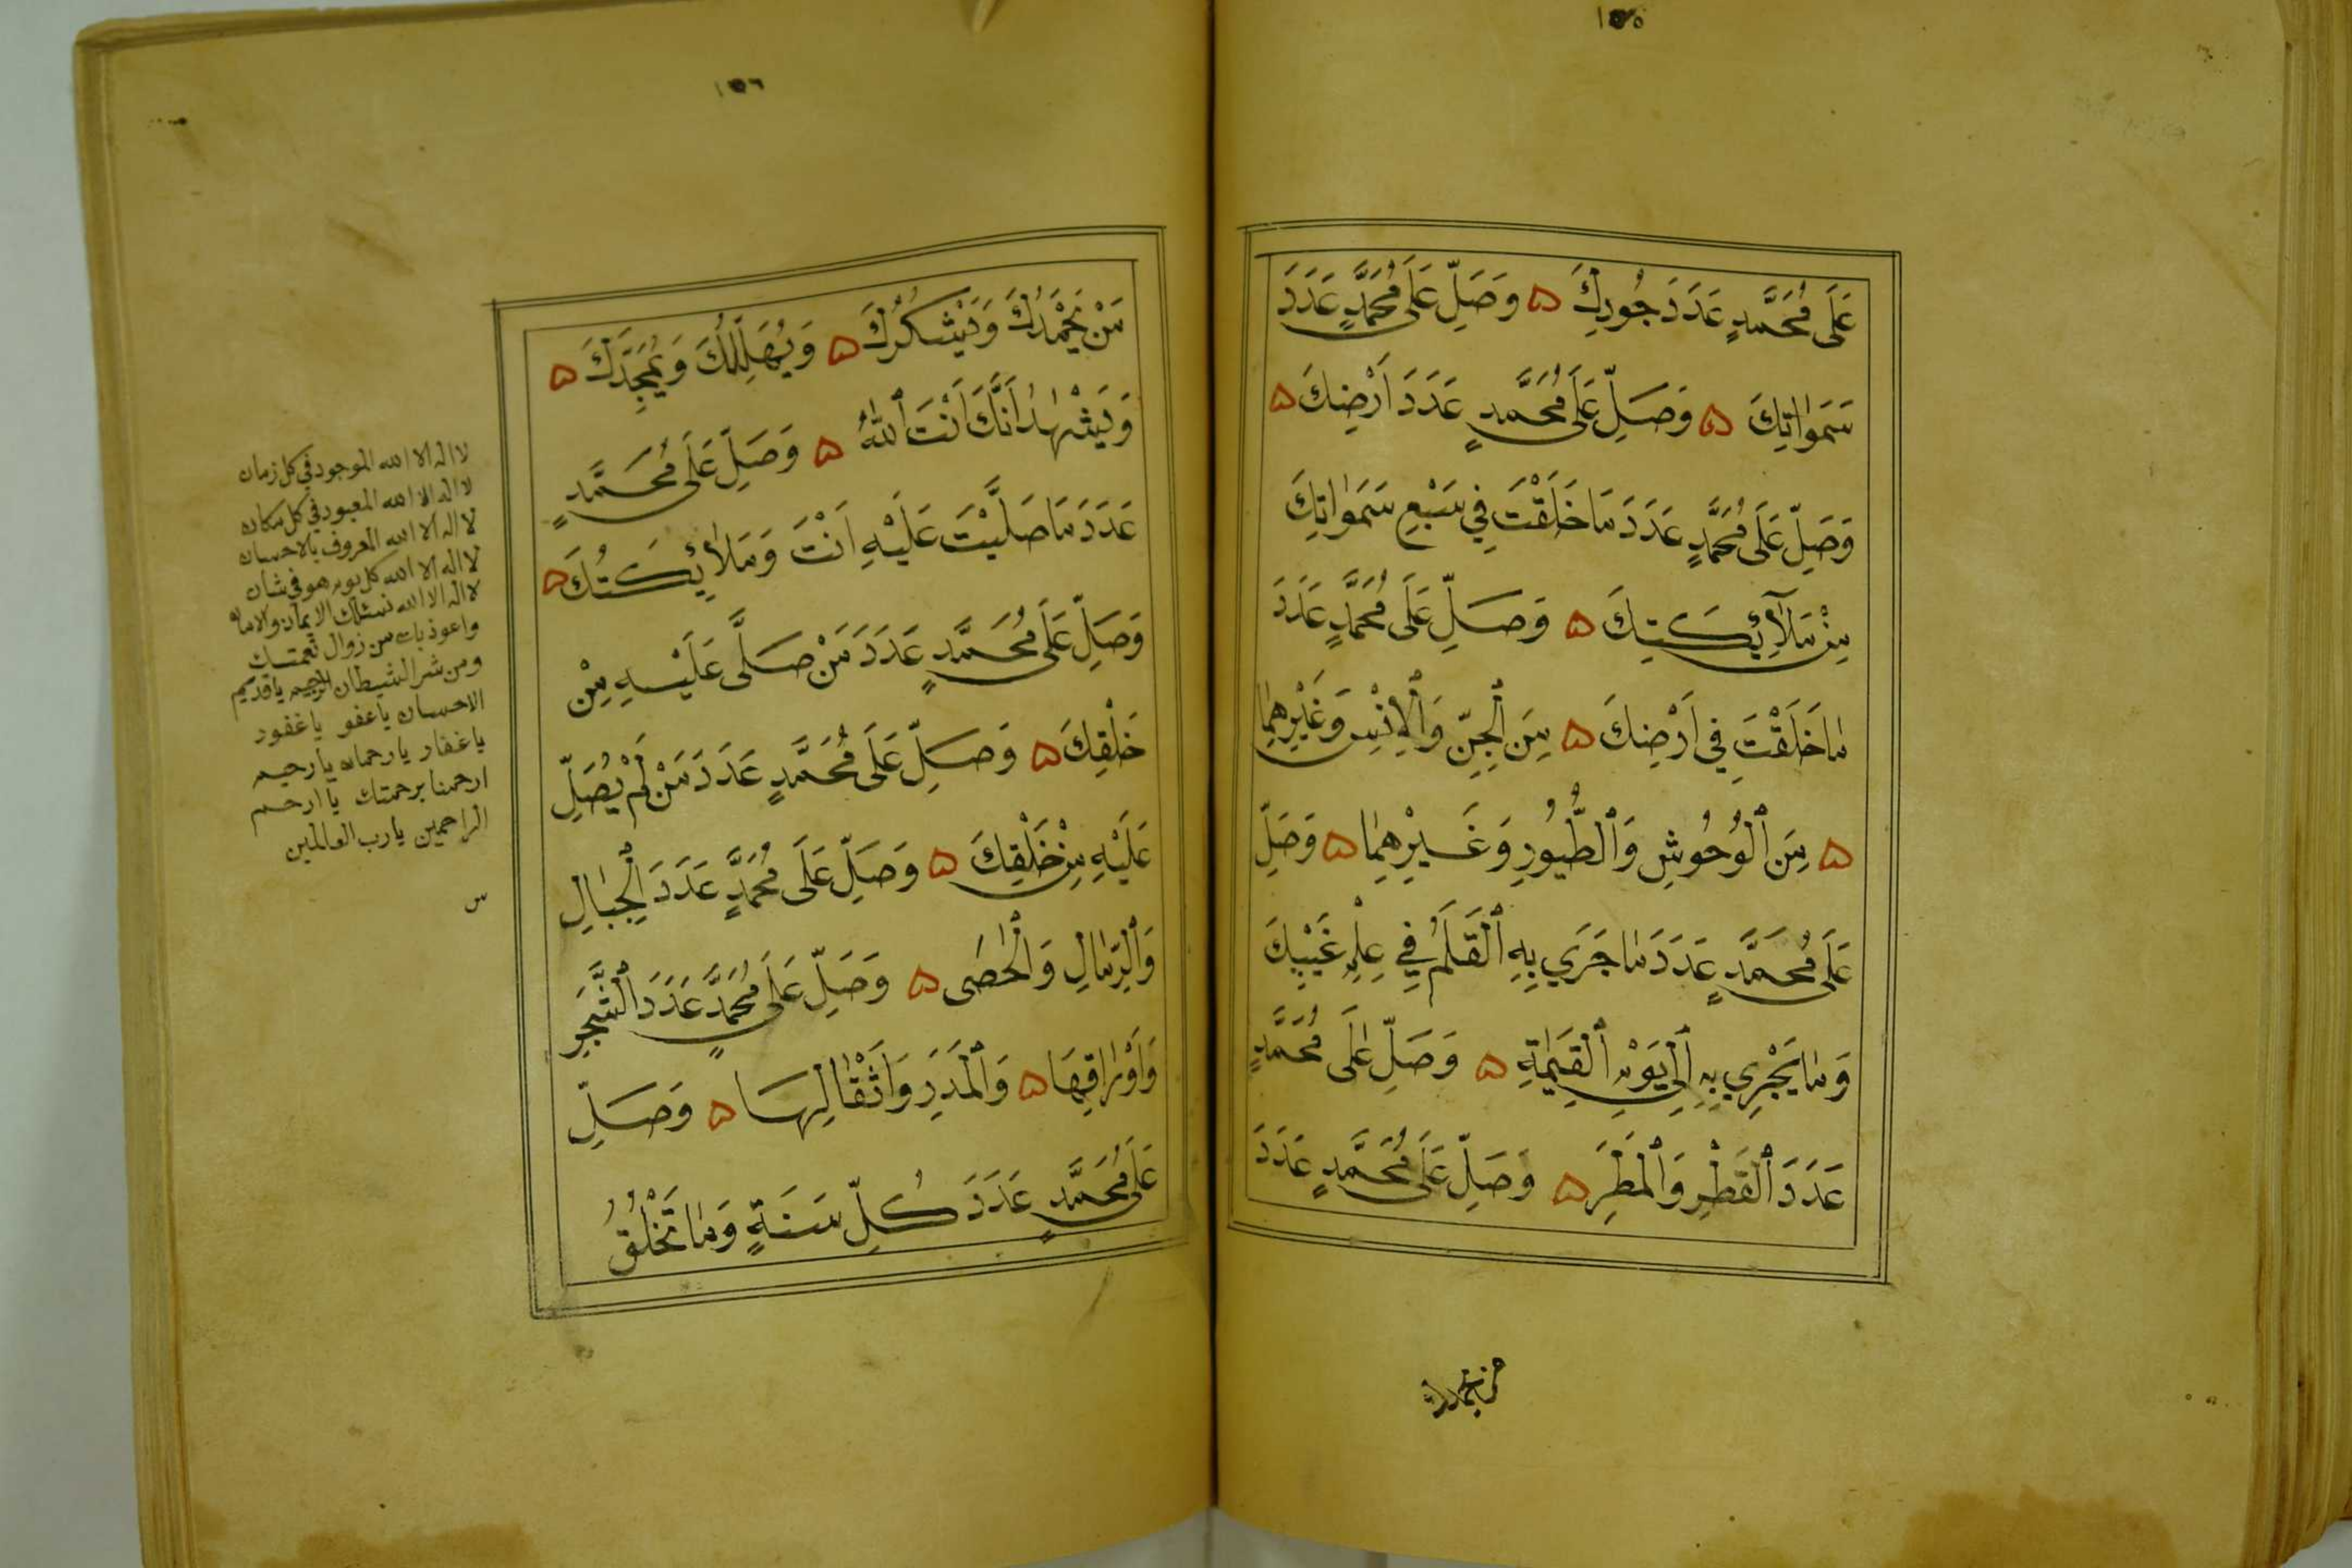 ١٥٥
عَلَى مُحَمَّدٍ عَدَدَ جُودِكَ ۵ وَصَلِّ عَلَى مُحَمَّدٍ عَدَدَ
سَمَوٰاتِكَ ۵ وَصَلِّ عَلَى مُحَمَّدٍ عَدَدَ اَرْضِكَ ۵
وَصَلِّ عَلَى مُحَمَّدٍ عَدَدَ مَا خَلَقْتَ فِي سَبْعِ سَمَوٰاتِكَ
مِنْ مَلآئِكَتِكَ ۵ وَصَلِّ عَلَى مُحَمَّدٍ عَدَدَ
مٰا خَلَقْتَ فِي اَرْضِكَ ۵ مِنَ الْجِنِّ وَالْاِنْسِ وَغَيْرِهِمٰا
۵ مِنَ الْوُحُوشِ وَالطُّيُورِ وَغَيْرِهِمٰا ۵ وَصَلِّ
عَلَى مُحَمَّدٍ عَدَدَ مٰا جَرَي بِهِ الْقَلَمُ فِي عِلْمِ غَيْبِكَ
وَمٰا يَجْرِي بِهِ اِلٰي يَوْمِ الْقِيٰمَةِ ۵ وَصَلِّ عَلَى مُحَمَّدٍ
عَدَدَ الْقَطْرِ وَالْمَطَرِ ۵ وَصَلِّ عَلَى مُحَمَّدٍ عَدَدَ
من يحمدك
١٥٦
مَنْ يَحْمَدُكَ وَيَشْكُرُكَ ۵ وَيُهَلِّلُكَ وَيُمَجِّدُكَ ۵
وَيَشْهَدُ اَنَّكَ اَنْتَ اللّٰهُ ۵ وَصَلِّ عَلَى مُحَمَّدٍ
عَدَدَ مَا صَلَّيْتَ عَلَيْهِ اَنْتَ وَمَلاٰئِكَتُكَ ۵
وَصَلِّ عَلَى مُحَمَّدٍ عَدَدَ مَنْ صَلَّى عَلَيْهِ مِنْ
خَلْقِكَ ۵ وَصَلِّ عَلَى مُحَمَّدٍ عَدَدَ مَنْ لَمْ يُصَلِّ
عَلَيْهِ مِنْ خَلْقِكَ ۵ وَصَلِّ عَلَى مُحَمَّدٍ عَدَدَ الْجِبٰالِ
وَالرِّمٰالِ وَالْحَصٰى ۵ وَصَلِّ عَلَى مُحَمَّدٍ عَدَدَ الشَّجَرِ
وَاَوْرٰاقِهَا ۵ وَالْمَدَرِ وَاَثْقٰالِهَا ۵ وَصَلِّ
عَلَى مُحَمَّدٍ عَدَدَ كُلِّ سَنَةٍ وَمٰا تَخْلُقُ
لا اله الا الله الموجود في كل زمان
لا اله الا الله المعبود في كل مكان
لا اله الا الله المعروف بالاحسان
لا اله الا الله كل يوم هو في شان
لا اله الا الله نسئلك الايمان والامان
واعوذ بك من زوال نعمتك
ومن شر الشيطان الرجيم يا قديم
الاحسان يا عفو يا غفور
يا غفار يا رحمان يا رحيم
ارحمنا برحمتك يا ارحم
الراحمين يا رب العالمين